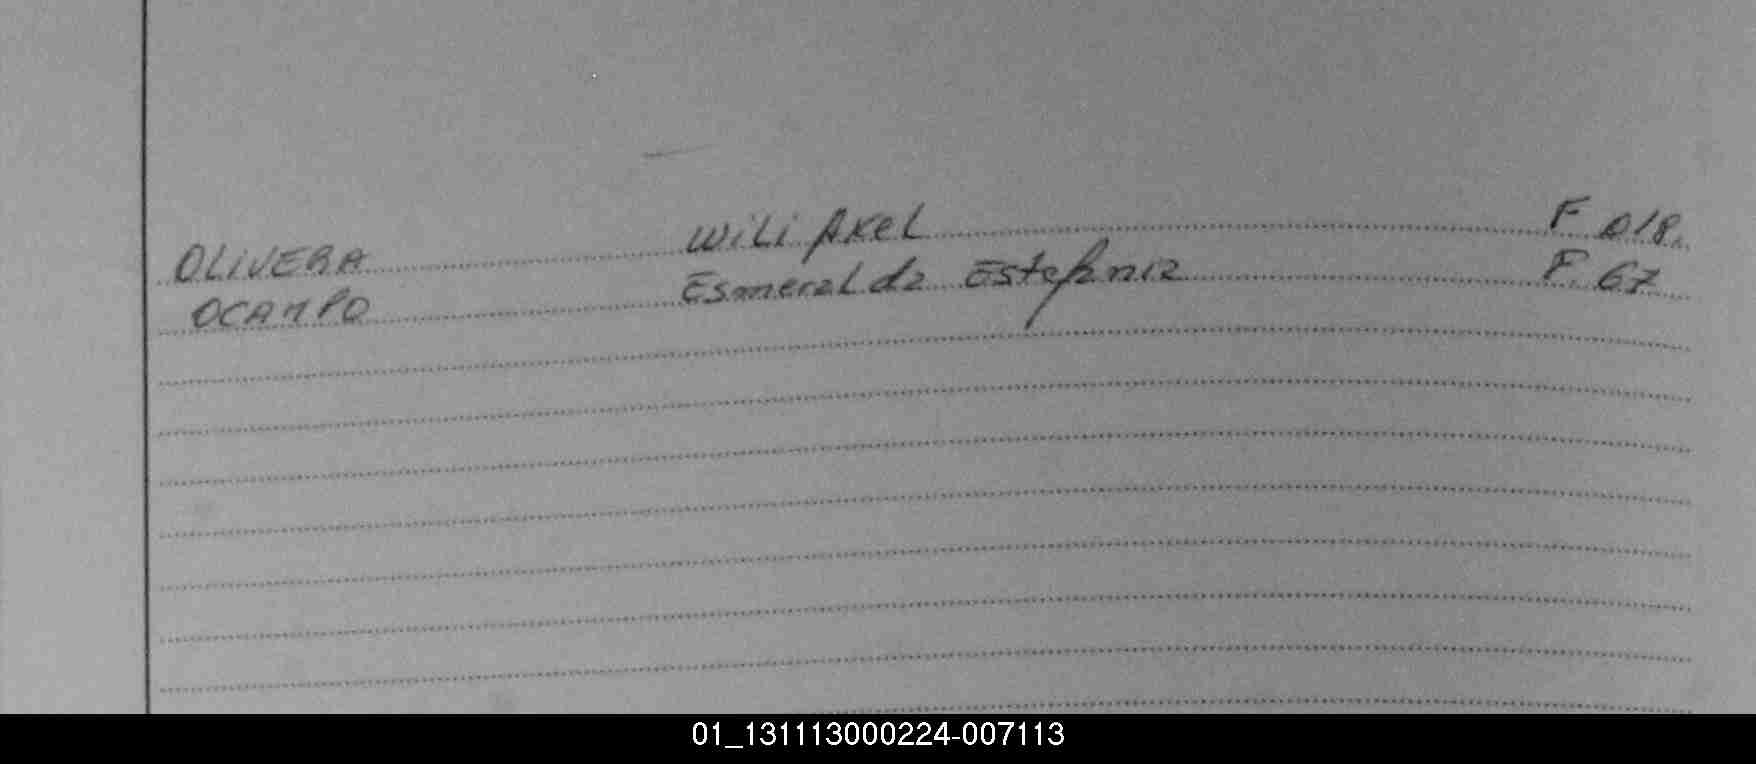 OLIVERA Wili Axel F 018.
OCAMPO Esmeralda Estefania F. 67
01_131113000224-007113